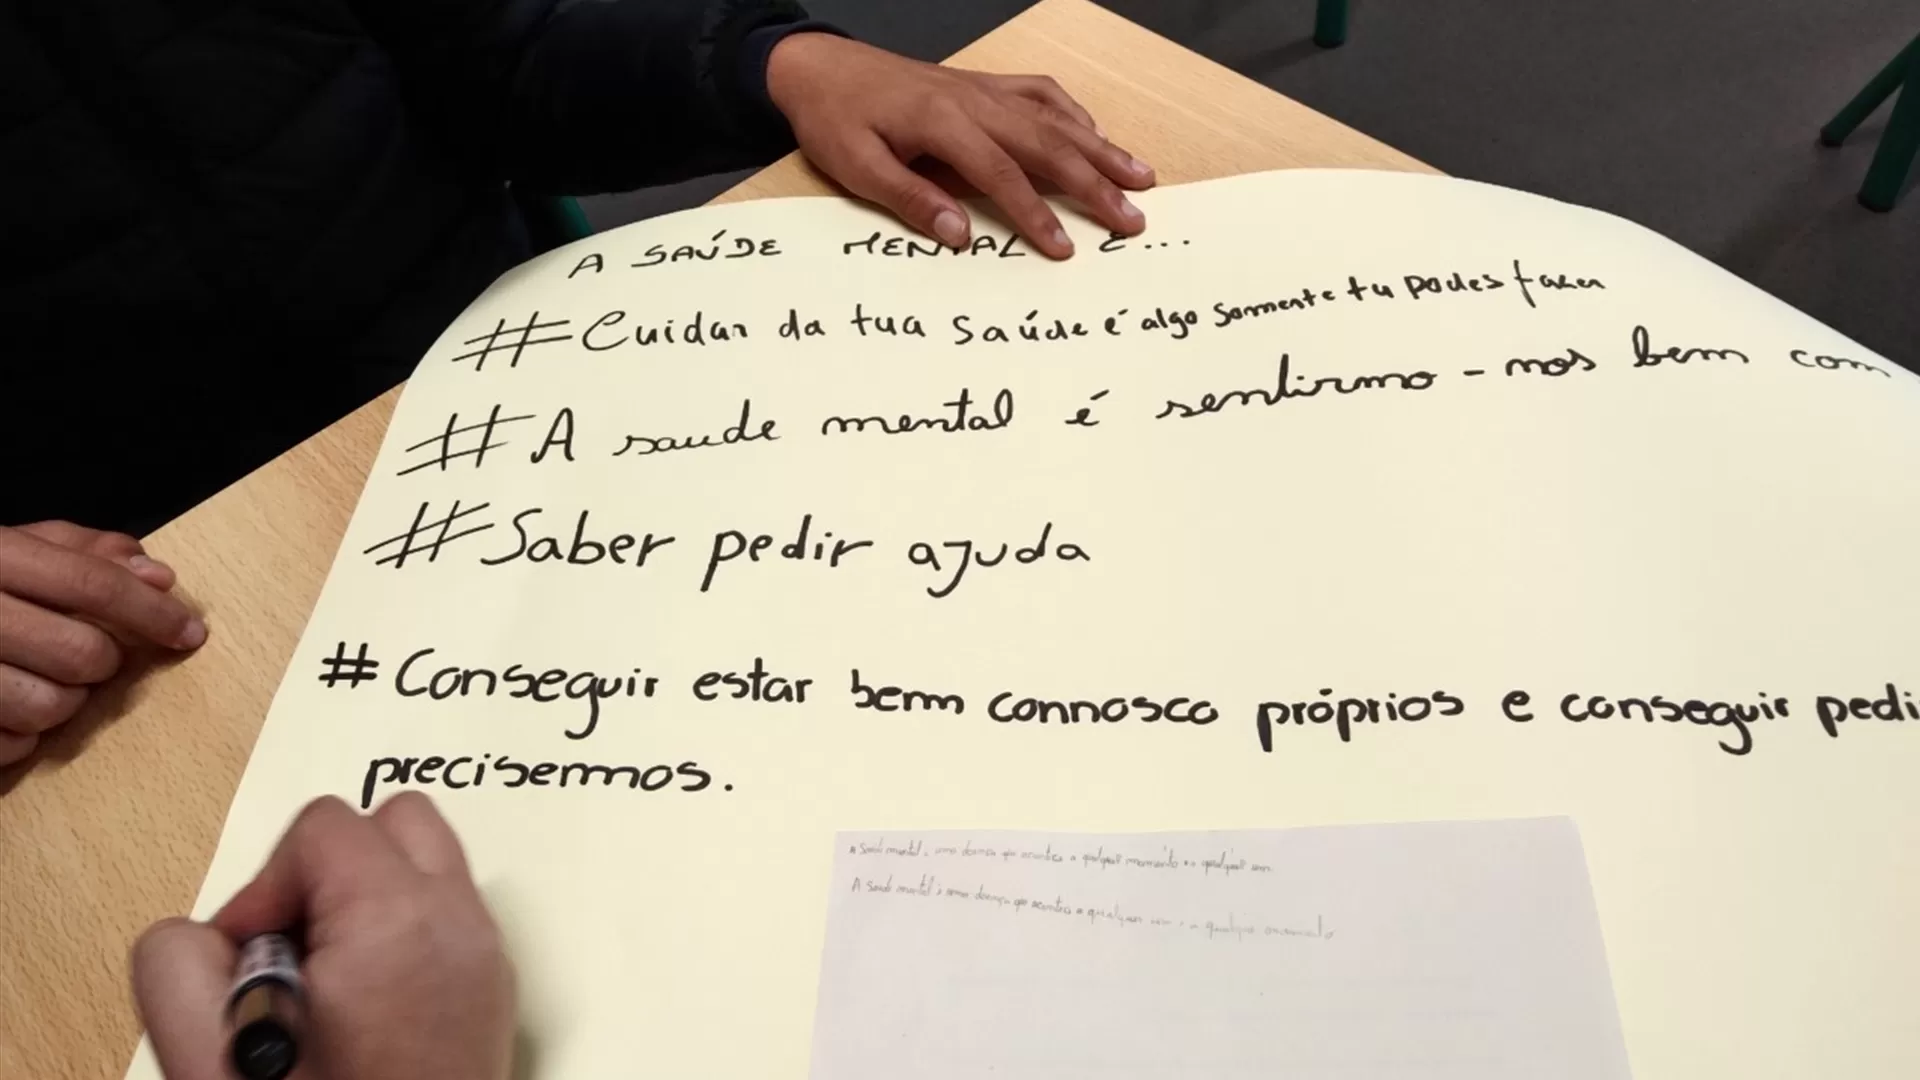 A SAÚDE MENTAL É...
# Cuidar da tua saúde é algo somente tu podes fazer
# A saude mental é sentirmo-nos bem com
# Saber pedir ajuda
# Conseguir estar bem connosco próprios e conseguir pedi
precisermos.
A saúde mental uma doença que acontece a qualquer momento
A saúde mental é uma doença que acontece a qualquer a qualquer momento